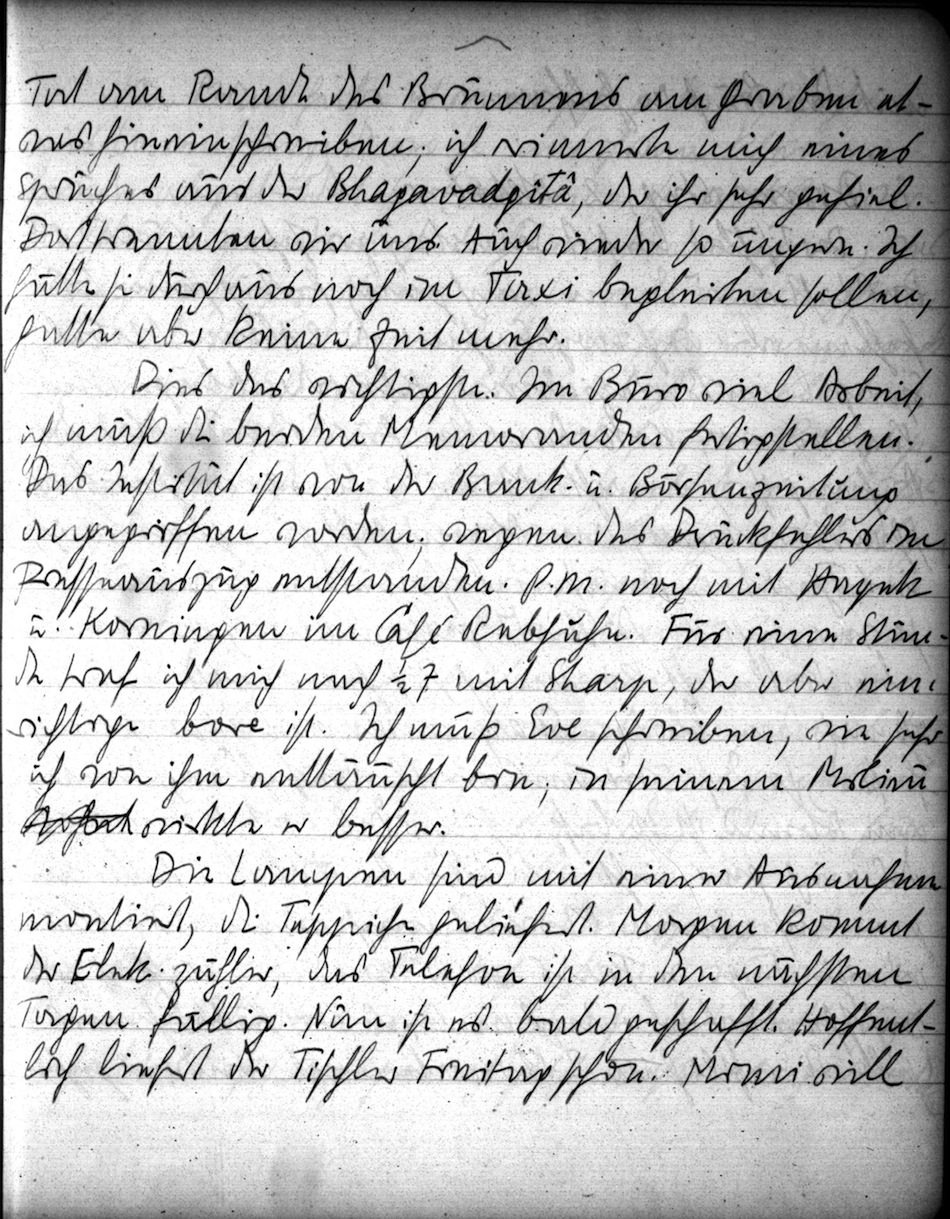 Tat am Rande des Brunnens am Graben et-
was hineinschreiben; ich erinnerte mich eines
Spruches aus der Bhagavadgîtâ, der ihr sehr gefiel.
Dort trennten wir uns. Auch wieder so ungern. Ich
hätte sie durchaus noch im Taxi begleiten sollen,
hatte aber keine Zeit mehr.
Dies das wichtigste. Im Büro viel Arbeit,
ich muß die beiden Memoranden fertigstellen.
Das Institut ist von der Bank- u. Börsenzeitung
angegriffen worden; wegen des Druckfehlers im
Presseauszug entstanden. P.M. noch mit Hayek
u. Korningen im Café Rebhuhn. Für eine Stun-
de traf ich mich nach ½7 mit Sharp, der aber ein
richtiger bore ist. Ich muß Eve schreiben, wie sehr
ich von ihm enttäuscht bin; in seinem Milieu
wirkte er besser.
Die Lampen sind mit einer Ausnahme
montiert, die Teppiche geliefert. Morgen kommt
der Elek. zähler, das Telefon ist in den nächsten
Tagen fällig. Nun ist es bald geschafft. Hoffent-
lich liefert der Tischler Freitag schon. Mimi will